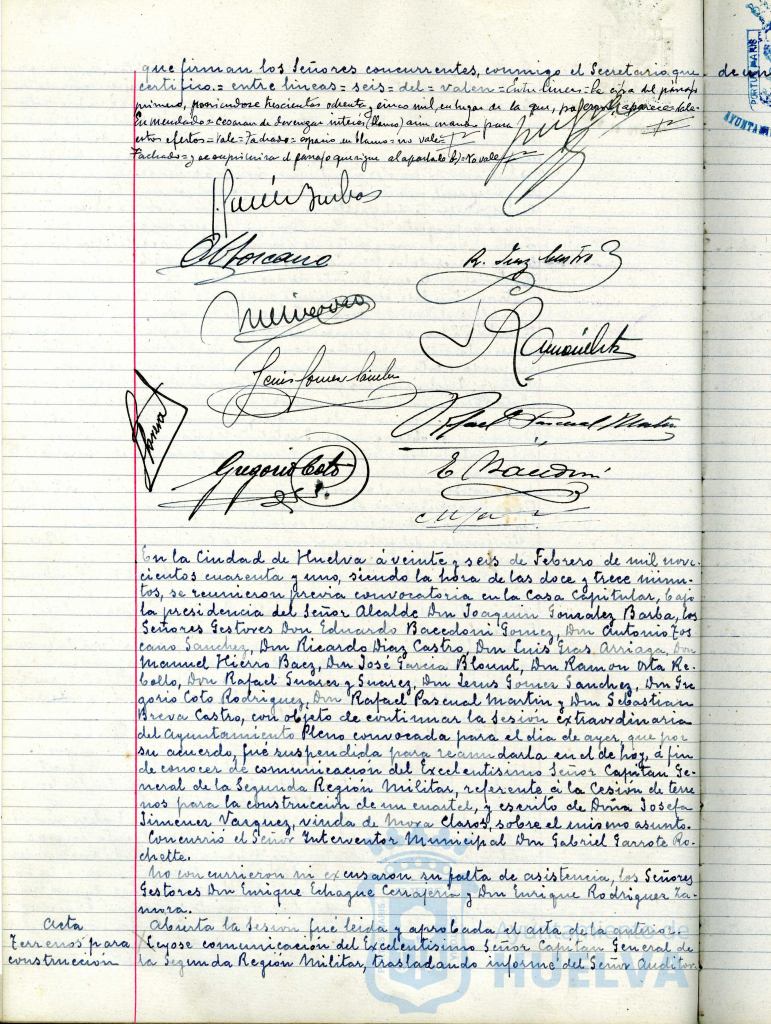 que firman los Señores concurrentes, conmigo el Secretario que
certifico.= entre lineas = seis = del = valen = Entre lineas = la cifra del párrafo
primero, poniendose trescientos ochenta y cinco mil, en lugar de la que, por error aparece = vale
Enmendado = cesaran de devengar interés
estos efectos = vale = Tachado = espacio en blanco = no vale =
Tachado = y se suprimira el parrafo que sigue al apartado b) = No vale
A. Toscano
R. Diaz Castro
Jesús Gomez Sanchez
Rafael Pascual Martin
Gregorio Coto
E Bacedoni
En la Ciudad de Huelva á veinte y seis de Febrero de mil nove-
cientos cuarenta y uno, siendo la hora de las doce y trece minu-
tos, se reunieron previa convocatoria en la Casa Capitular, bajo
la presidencia del Señor Alcalde Don Joaquin González Barba, los
Señores Gestores Don Eduardo Bacedoni Gomez, Don Antonio Tos
cano Sanchez, Don Ricardo Diaz Castro, Don Luis Gras Arriaga, Don
Manuel Hierro Baez, Don José Garcia Blount, Don Ramon Orta Re-
bollo, Don Rafael Suarez y Suarez, Don Jesus Gomez Sanchez, Don Gre
gorio Coto Rodriguez, Don Rafael Pascual Martin y Don Sebastian
Breva Castro, con objeto de continuar la sesión extraordinaria
del Ayuntamiento Pleno convocada para el dia de ayer, que por
su acuerdo, fué suspendida para reanudarla en el de hoy, á fin
de conocer de comunicación del Excelentisimo Señor Capitan Ge-
neral de la Segunda Región Militar, referente á la Cesión de terre
nos para la construcción de un cuartel, y escrito de Doña Josefa
Jimenez Vazquez, viuda de Mora Claros, sobre el mismo asunto.
Concurrió el Señor Interventor Municipal Don Gabriel Garrote Ro-
chette.
No concurrieron ni excusaron su falta de asistencia, los Señores
Gestores Don Enrique Echague Cerrageria y Don Enrique Rodriguez Za-
mora.
Acta Abierta la sesión fué leida y aprobada el acta de la anterior.
Terrenos para Leyose comunicación del Excelentisimo Señor Capitan General de
construcción la Segunda Región Militar, trasladando informe del Señor Auditor
HUELVA